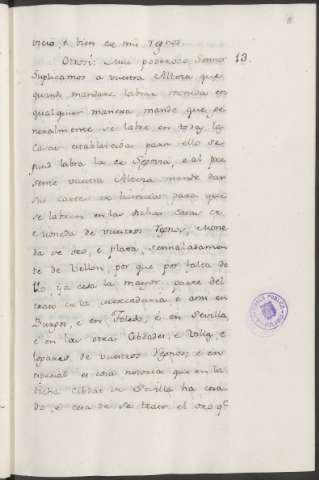 vicio, e bien de mis Regnos.
13.
Otrosi: Mui poderoso Sennor
suplicamos a vuestra Alteza que
quando mandare labrar moneda en
qualquier manera, mande que ge
neralmente se labre en todas las
Casas establecidas para ello se
gund labra la de Segovia, e al pre
sente vuestra Alteza mande dar
sus cartas e licencias para que
se labren en las dichas Casas de
Moneda de vuestros Regnos, Mone
da de oro, e plata, sennaladamen
te de Vellon, por que por falta de
llo, ya cesa la mayor parte del
trato en la mercaduria, e aun en
Burgos, e en Toledo, e en Sevilla
e en las otras Cibdades, e Villas, e
logares de vuestros Regnos; e en
especial es cosa notoria que en la
dicha Cibdat de Sevilla ha cesa
do, e cesa de se traer el oro qe